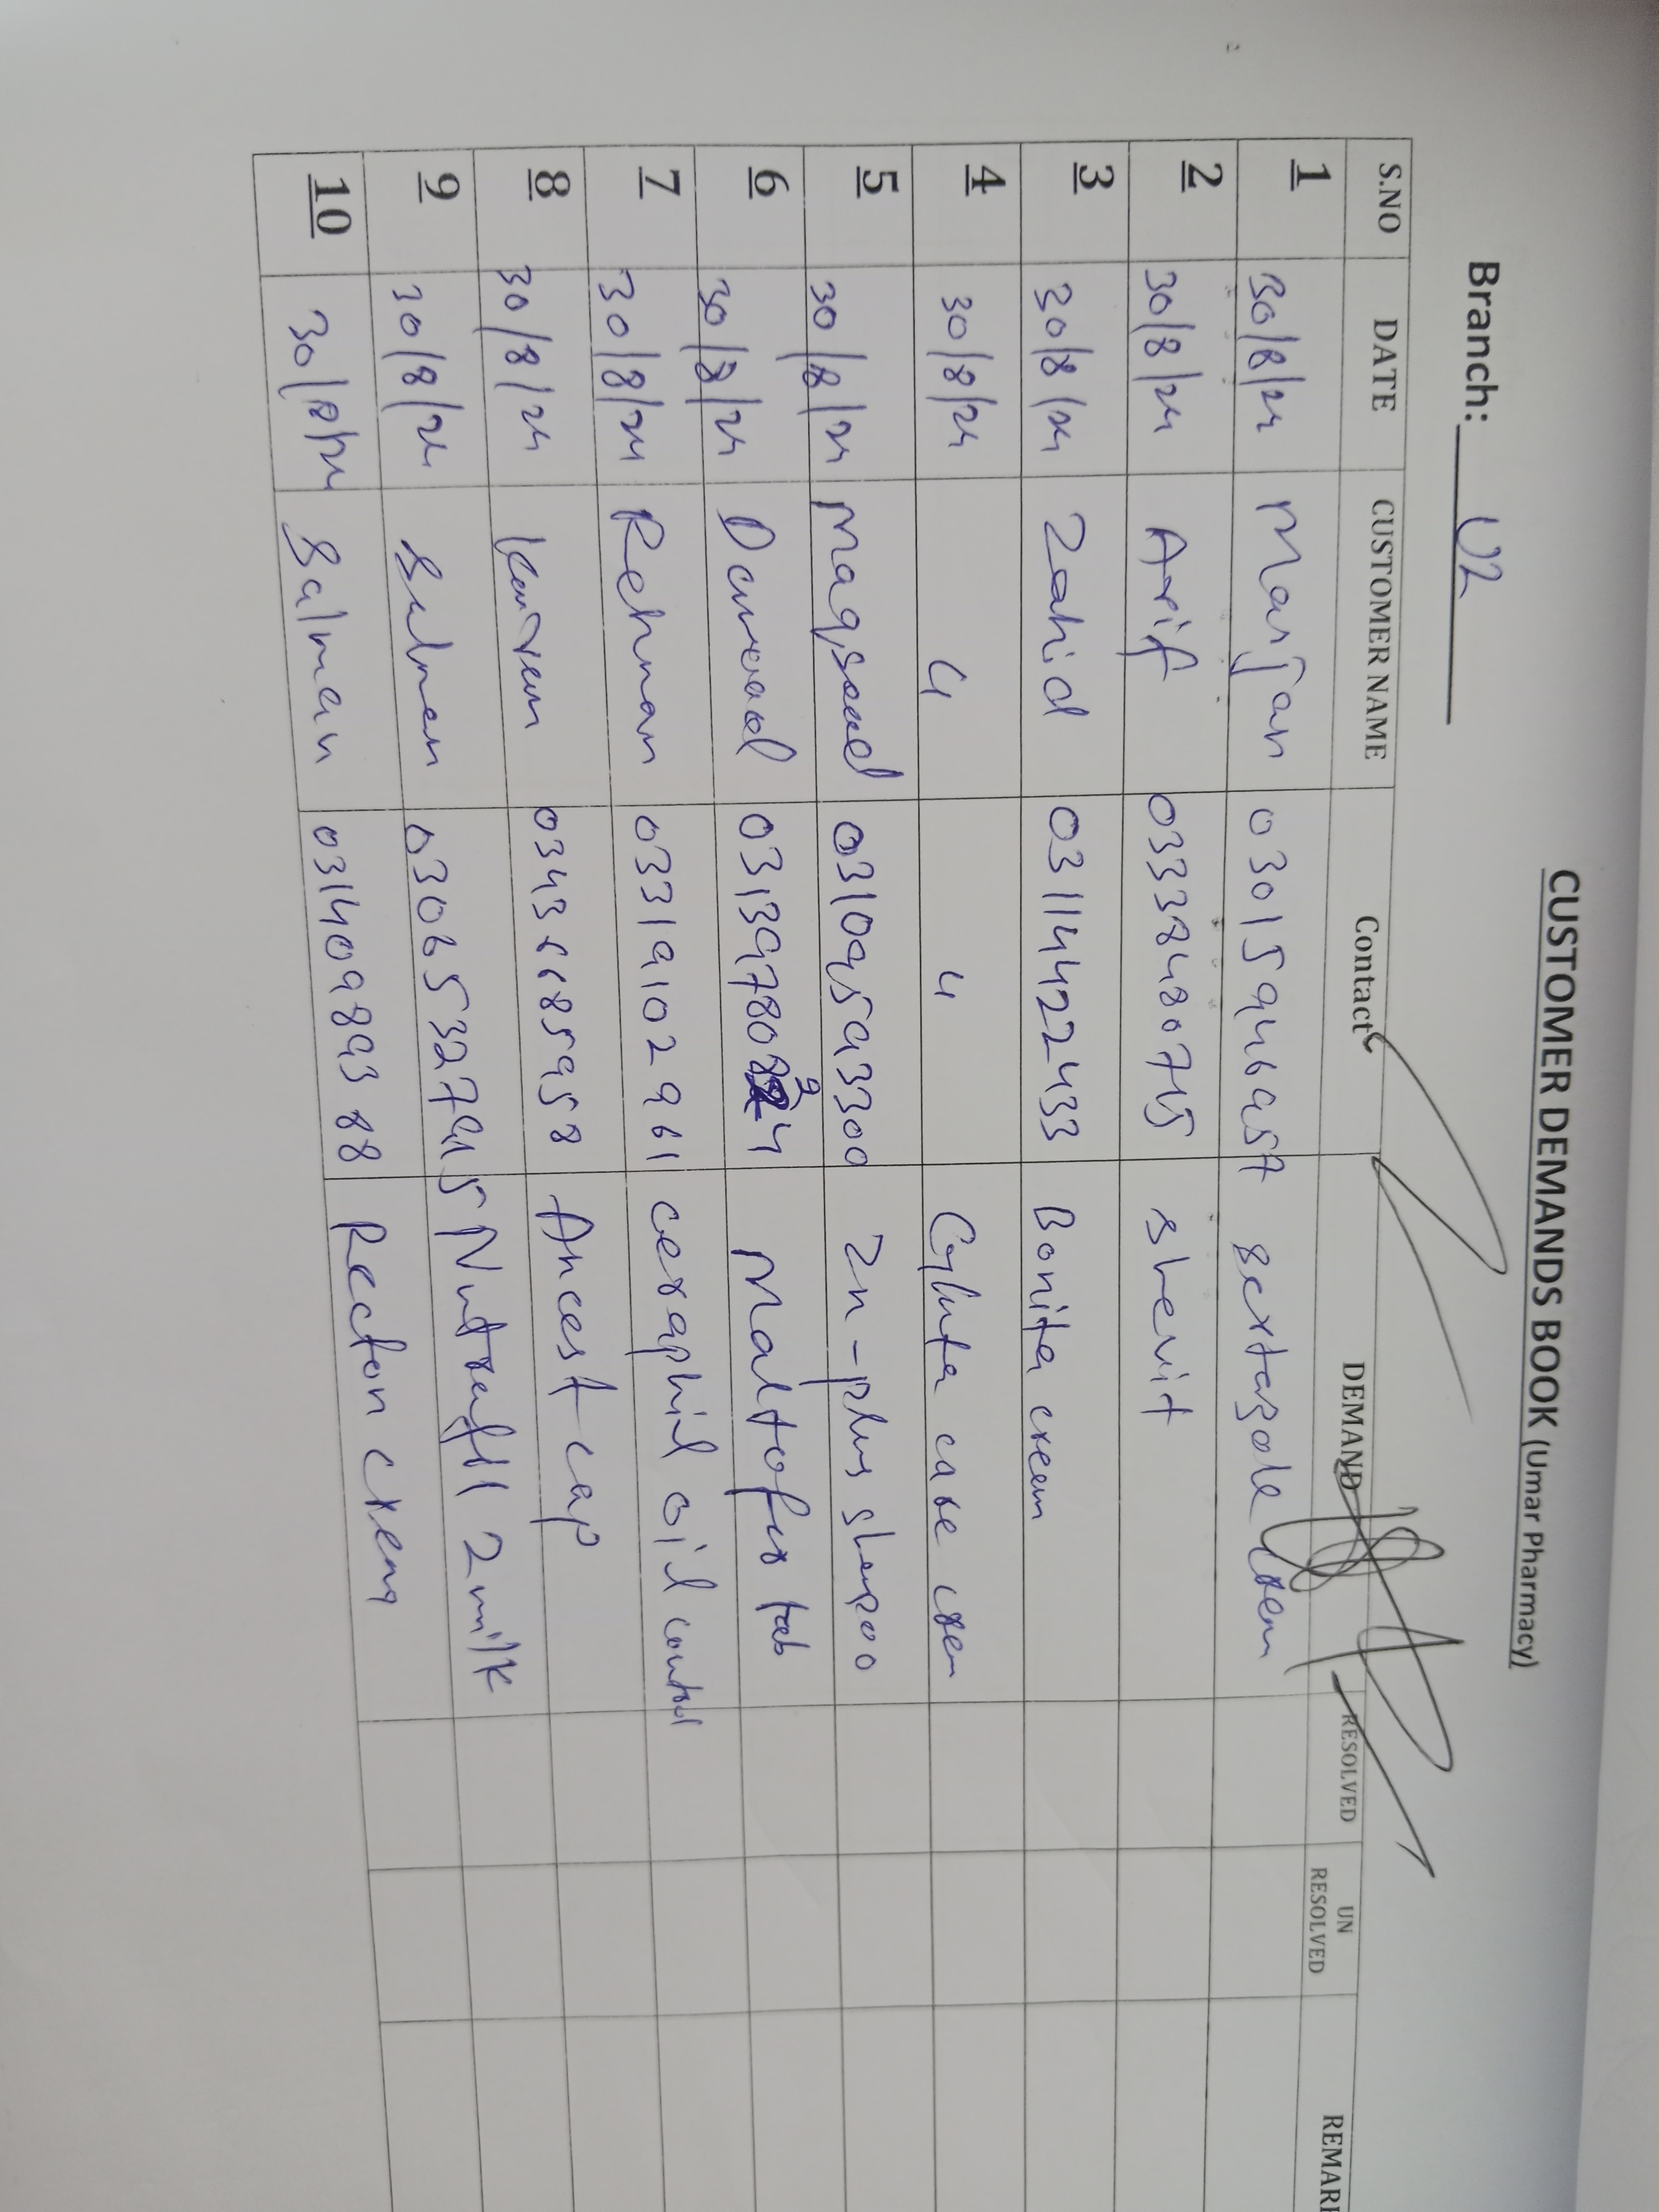 CUSTOMER DEMANDS BOOK (Umar Pharmacy)
Branch: U2
S.NO DATE CUSTOMER NAME Contact DEMAND RESOLVED UN RESOLVED REMAR
1 30/8/24 Marjan 03015946957 sertazole crem
2 30/8/24 Arif 03338480715 shevit
3 30/8/24 Zahid 03114422433 Bonita cream
4 30/8/24 4 4 care crem
5 30/8/24 Maqsood 03109593300 Zn-plus shampoo
6 30/8/24 Dawood Maltofer tab
7 30/8/24 Rehman 03319102961 ceraphil oil control
8 30/8/24 03436685958 Ancest cap
9 30/8/24 Salman 03065327915 2 milk
10 30/8/24 Salman 03140989388 Recton cream